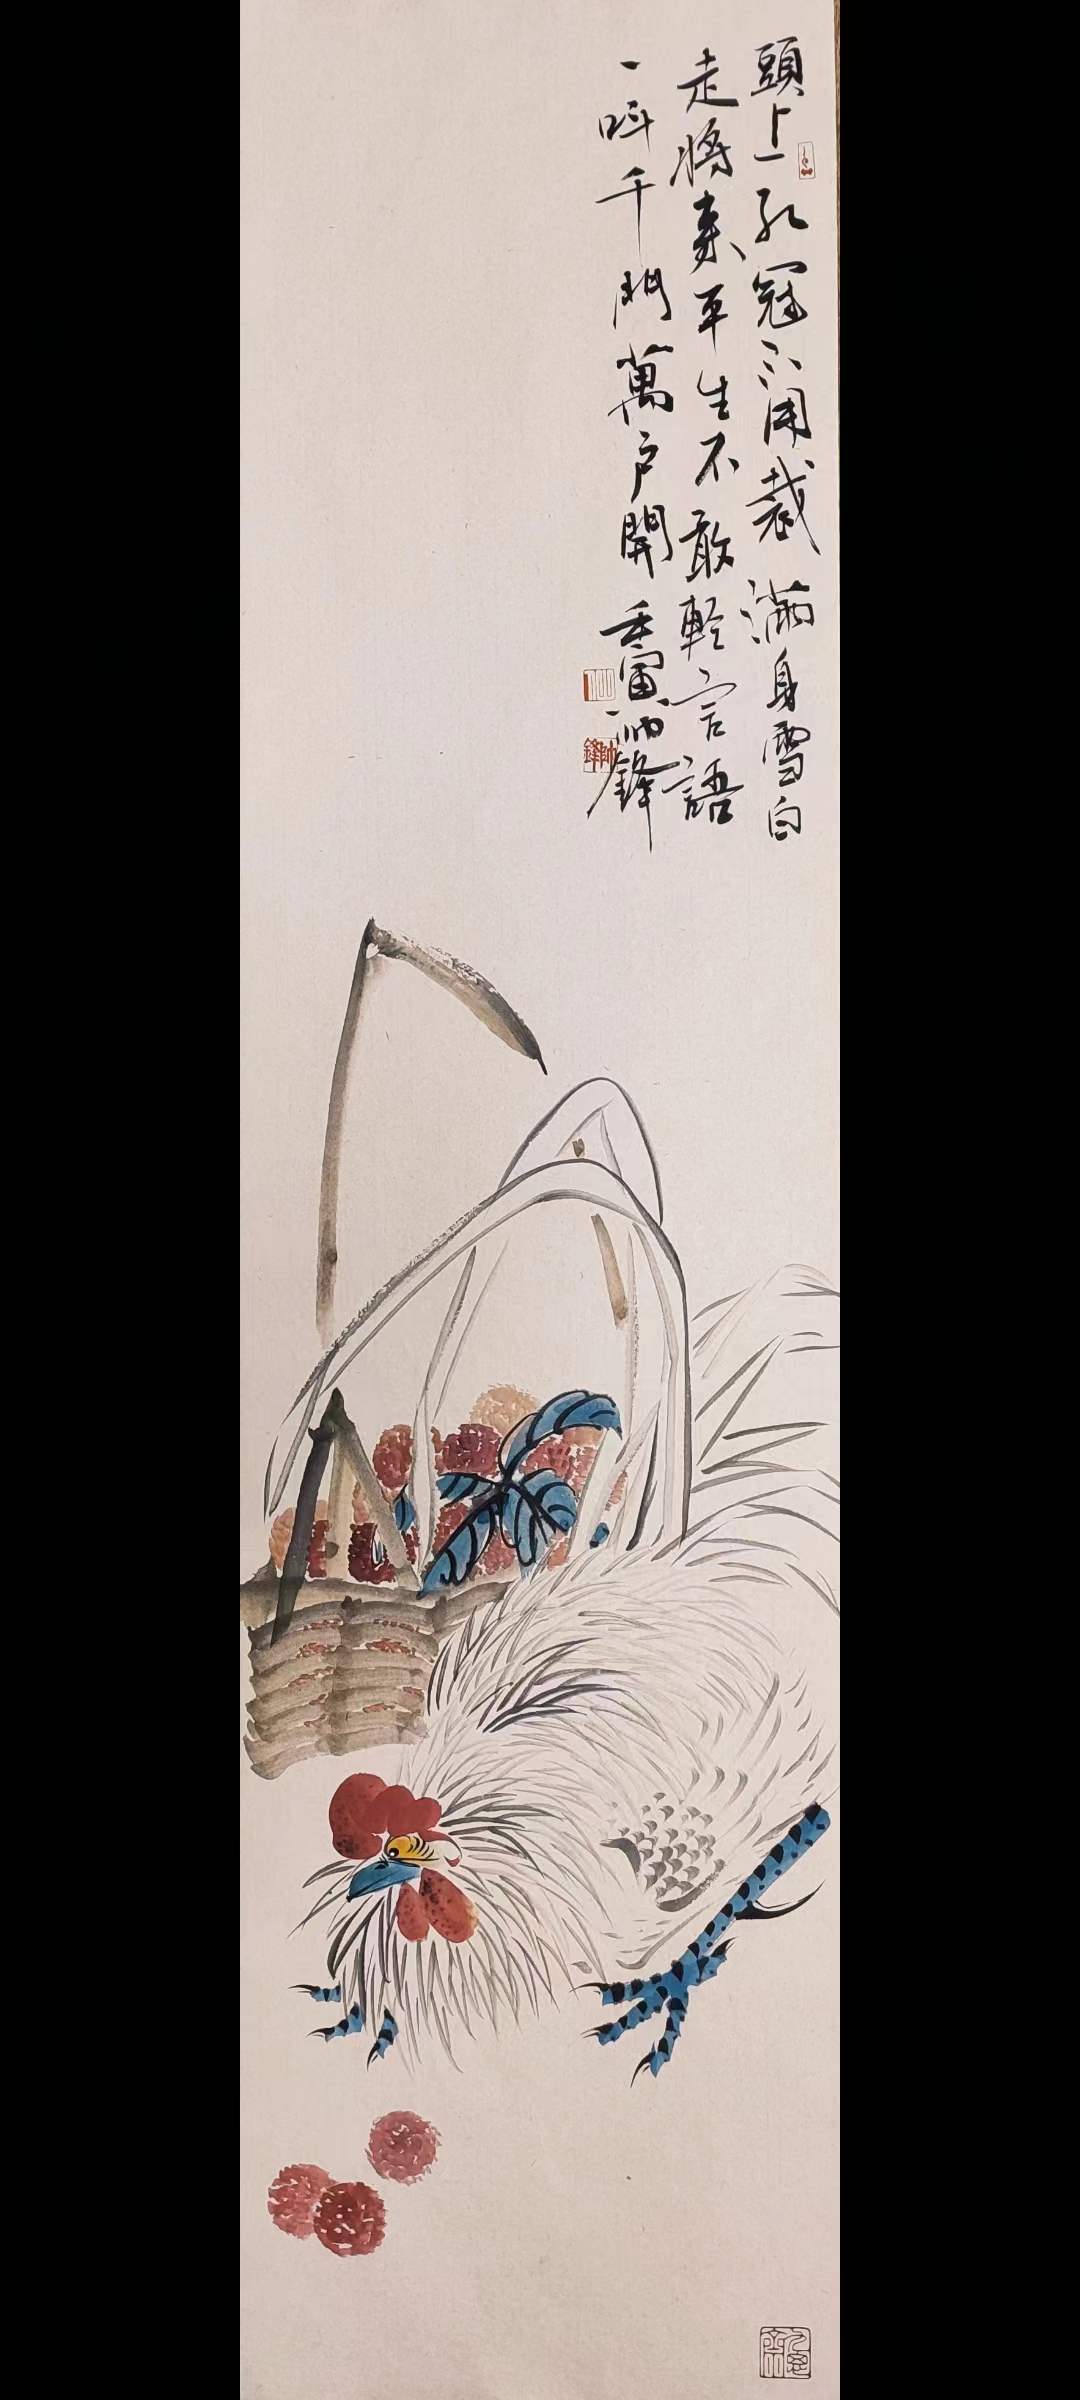 頭上紅冠不用裁滿身雪白
走將來平生不敢輕言語
一叫千門萬户開 壬寅 帥鋒
帥鋒